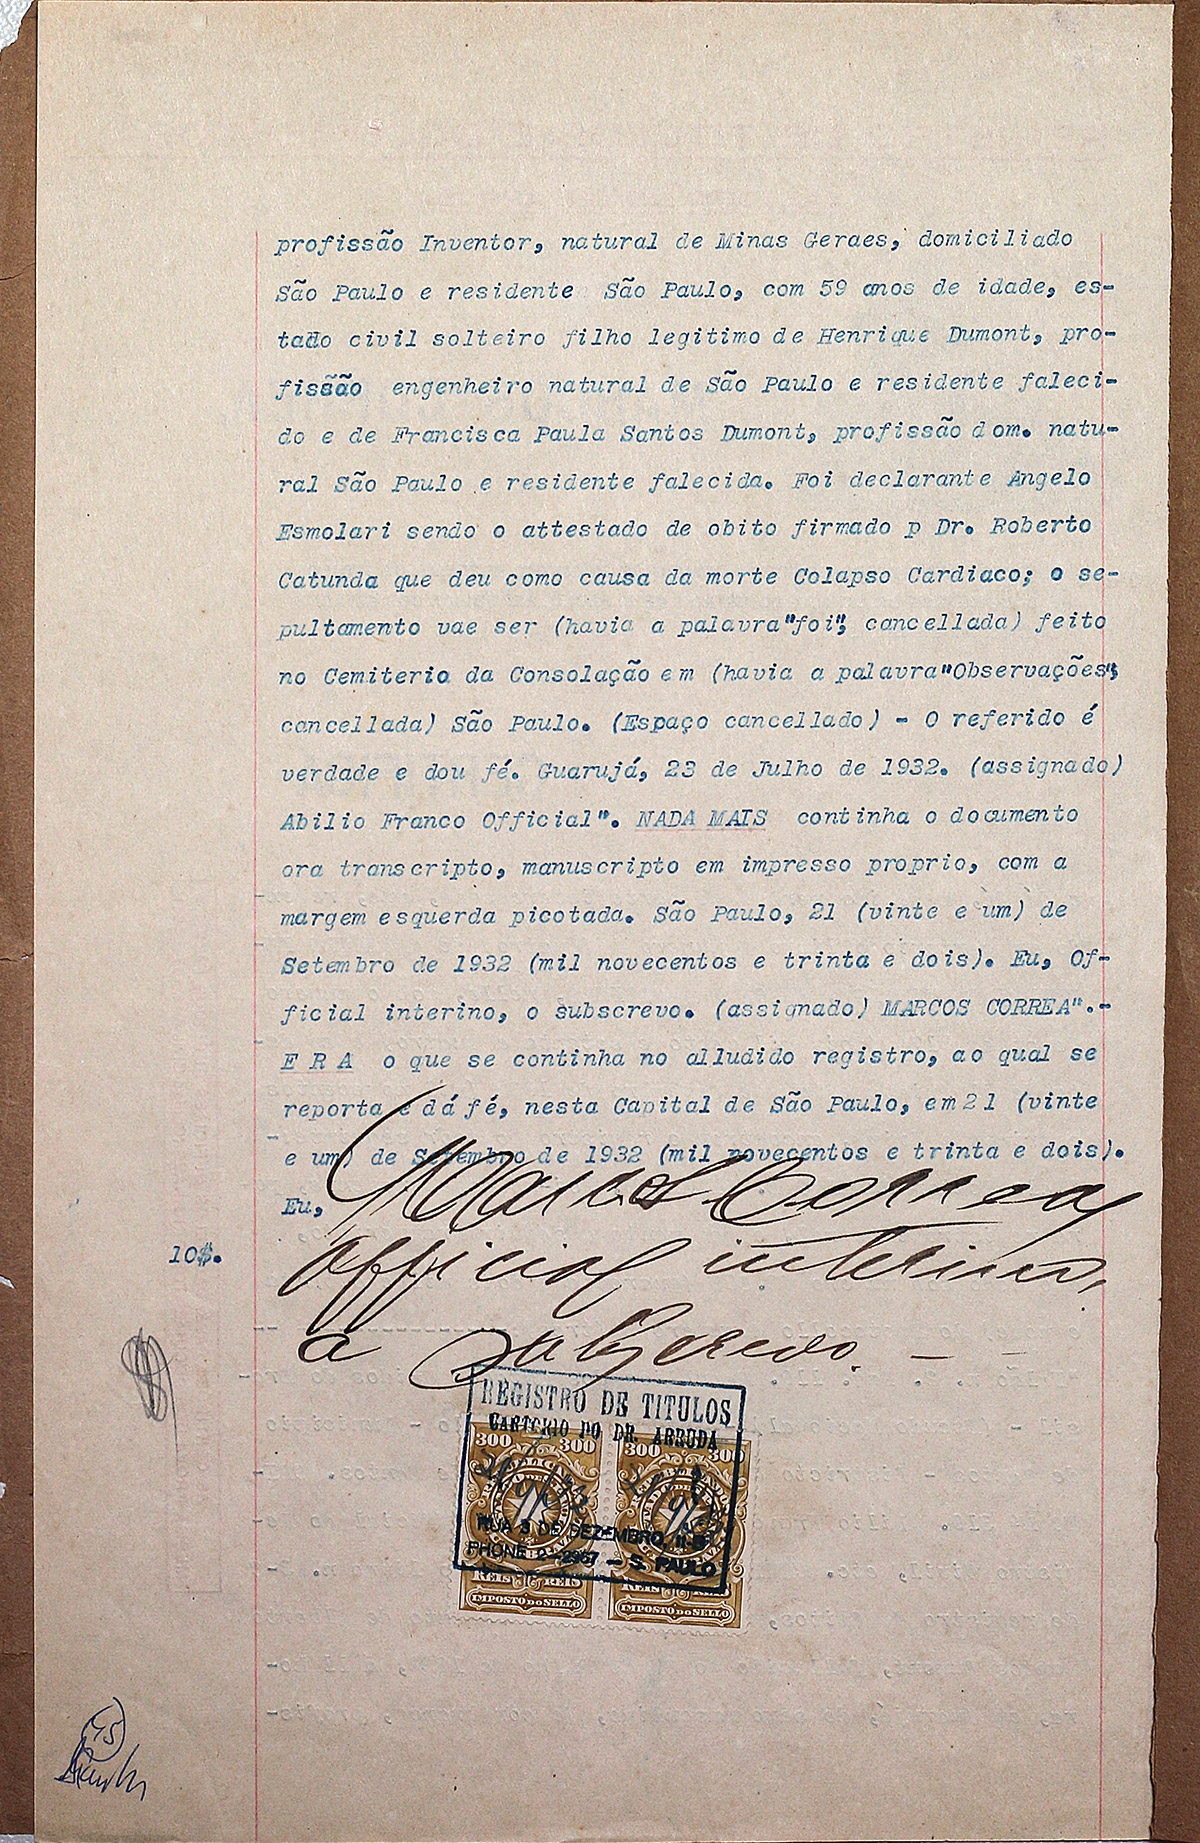 profissão Inventor, natural de Minas Geraes, domiciliado
São Paulo e residente São Paulo, com 59 anos de idade, es-
tado civil solteiro filho legitimo de Henrique Dumont, pro-
fissão engenheiro natural de São Paulo e residente faleci-
do e de Francisca Paula Santos Dumont, profissão dom. natu-
ral São Paulo e residente falecida. Foi declarante Angelo
Esmolari sendo o attestado de obito firmado p Dr. Roberto
Catunda que deu como causa da morte Colapso Cardiaco; o se-
pultamento vae ser (havia a palavra "foi", cancellada) feito
no Cemiterio da Consolação em (havia a palavra "Observações",
cancellada) São Paulo. (Espaço cancellado) - O referido é
verdade e dou fé. Guarujá, 23 de Julho de 1932. (assignado)
Abilio Franco Official". NADA MAIS continha o documento
ora transcripto, manuscripto em impresso proprio, com a
margem esquerda picotada. São Paulo, 21 (vinte e um) de
Setembro de 1932 (mil novecentos e trinta e dois). Eu, Of-
ficial interino, o subscrevo. (assignado) MARCOS CORREA".-
E R A o que se continha no alludido registro, ao qual se
reporta e dá fé, nesta Capital de São Paulo, em 21 (vinte
e um) de Setembro de 1932 (mil novecentos e trinta e dois).
Eu, Marcos Correa
10$.
official interino,
o subscrevo. - -
REGISTRO DE TITULOS
CARTORIO DO DR. ARRUDA
300 300 300 300
RUA 3 DE DEZEMBRO,
PHONE 2-2967 - S. PAULO
REIS REIS REIS REIS
IMPOSTO DO SELLO IMPOSTO DO SELLO
45